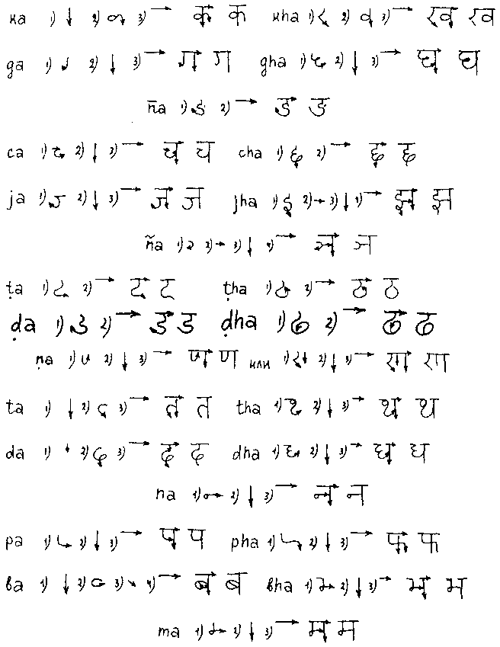 ка 1) ↓ 2) 3) → क क кha 1) 2) 3) → ख ख
ga 1) 2) ↓ 3) → ग ग gha 1) 2) ↓ 3) → घ घ
n̄a 1) 2) → ङ ङ
ca 1) 2) ↓ 3) → च च cha 1) 2) → छ छ
ja 1) 2) ↓ 3) → ज ज jha 1) 2) → 3) ↓ 4) → झ झ
ña 1) 2) → 3) ↓ 4) → ञ ञ
ṭa 1) 2) → ट ट ṭha 1) 2) → ठ ठ
ḍa 1) 2) → ड ड ḍha 1) 2) → ढ ढ
ṇa 1) 2) ↓ 3) → ण ण или 1) 2) ↓ 3) →
ta 1) ↓ 2) 3) → त त tha 1) 2) ↓ 3) → थ थ
da 1) 2) 3) → द द dha 1) 2) ↓ 3) → ध ध
na 1) → 2) ↓ 3) → न न
pa 1) 2) ↓ 3) → प प pha 1) 2) ↓ 3) → फ फ
ва 1) ↓ 2) 3) 4) → ब ब вha 1) 2) ↓ 3) → भ भ
ma 1) 2) ↓ 3) → म म